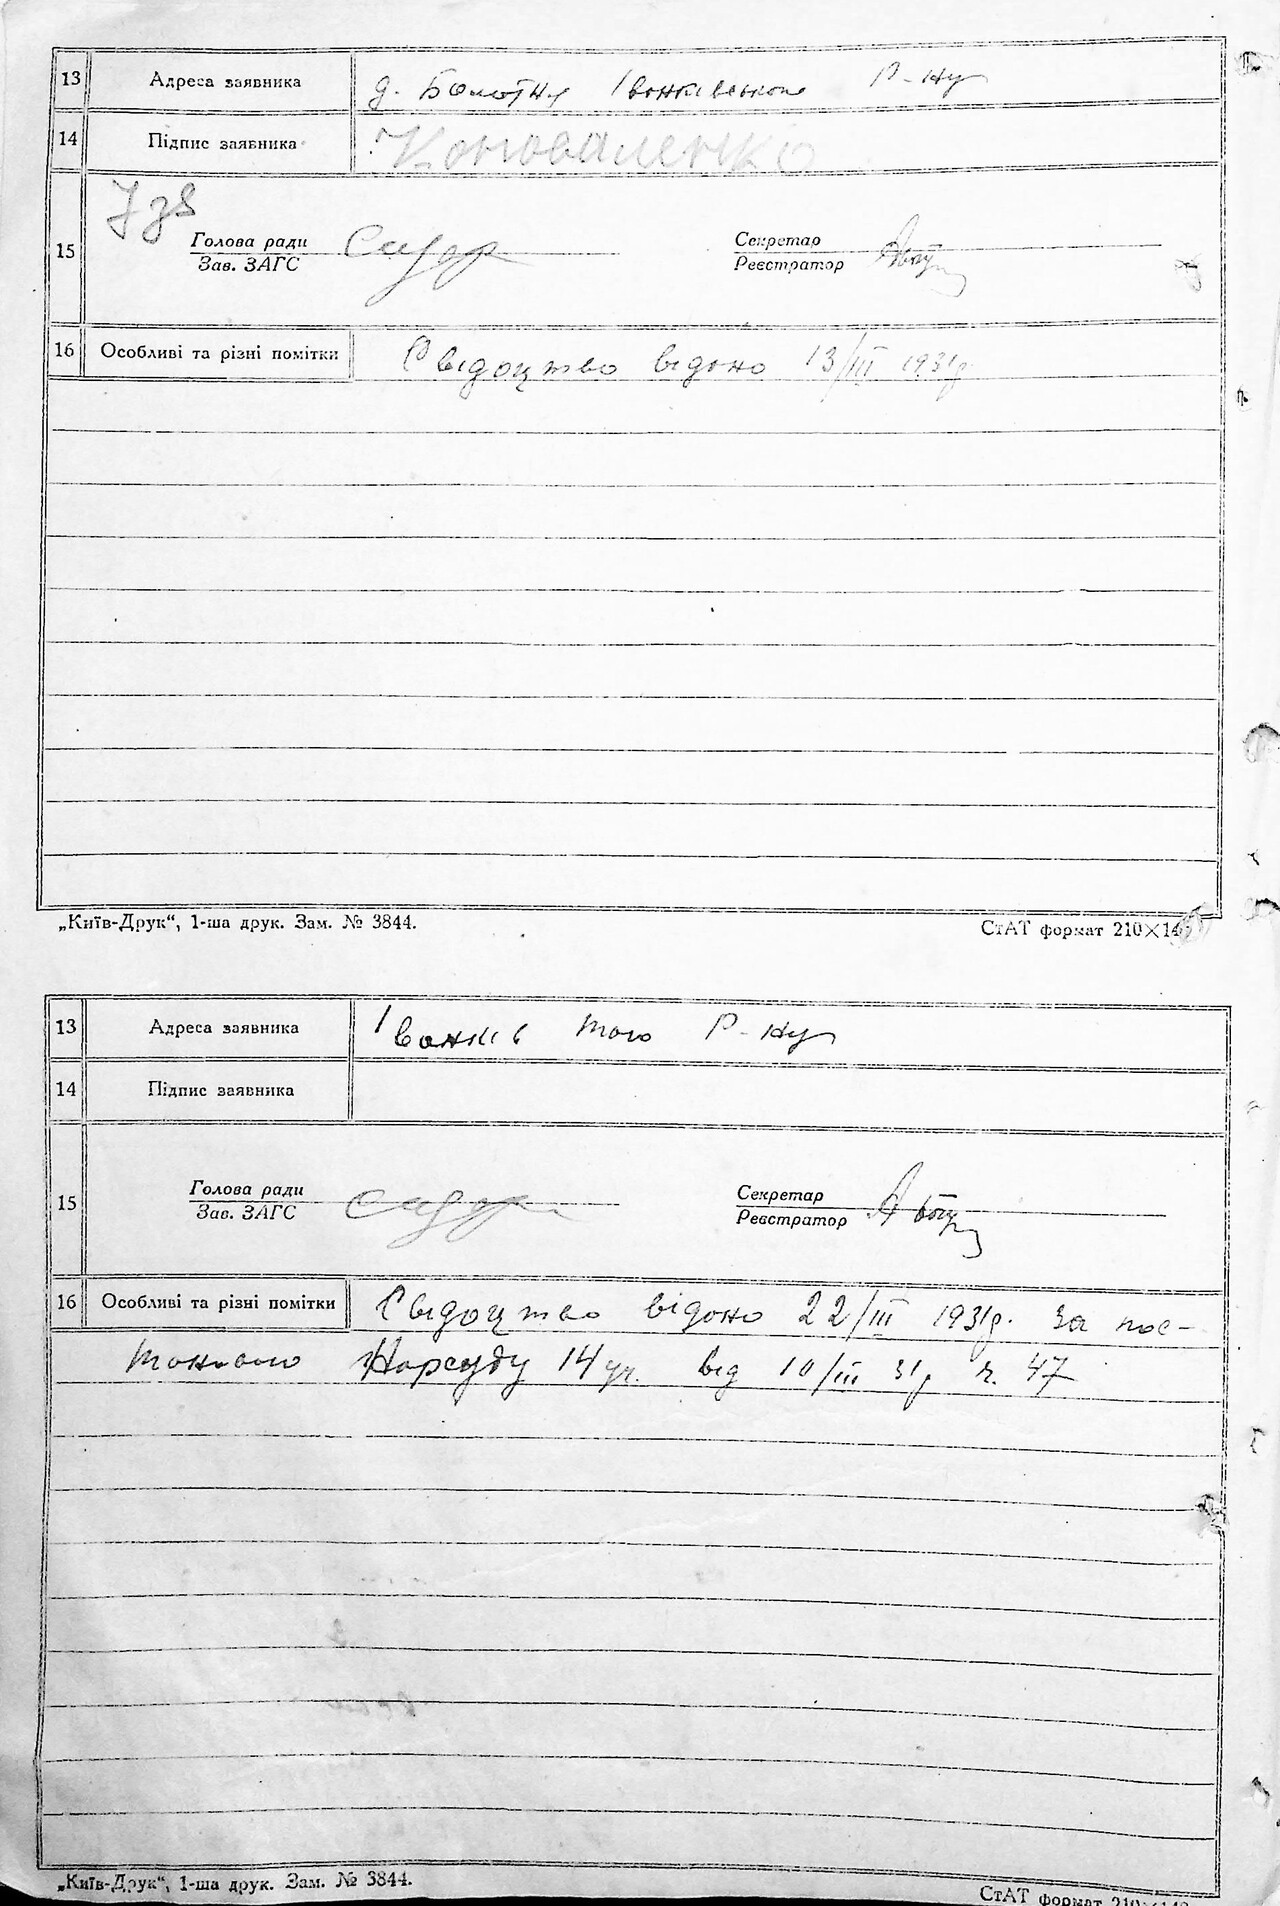 13 Адреса заявника д. Болотня Іванківського Р-ну
14 Підпис заявника Коноваленко
15 Голова ради Секретар
Зав. ЗАГС Реєстратор
16 Особливі та різні помітки Свідоцтво відано 13/III 1931р.
„Київ-Друк“, 1-ша друк. Зам. № 3844. СтАТ формат 210×14
13 Адреса заявника Іванків того Р-ну
14 Підпис заявника
15 Голова ради Секретар
Зав. ЗАГС Реєстратор
16 Особливі та різні помітки Свідоцтво відано 22/III 1931р. за пос-
тановою Нарсуду 14 уч. від 10/III 31р ч. 47
„Київ-Друк“, 1-ша друк. Зам. № 3844. СтАТ формат 210×148